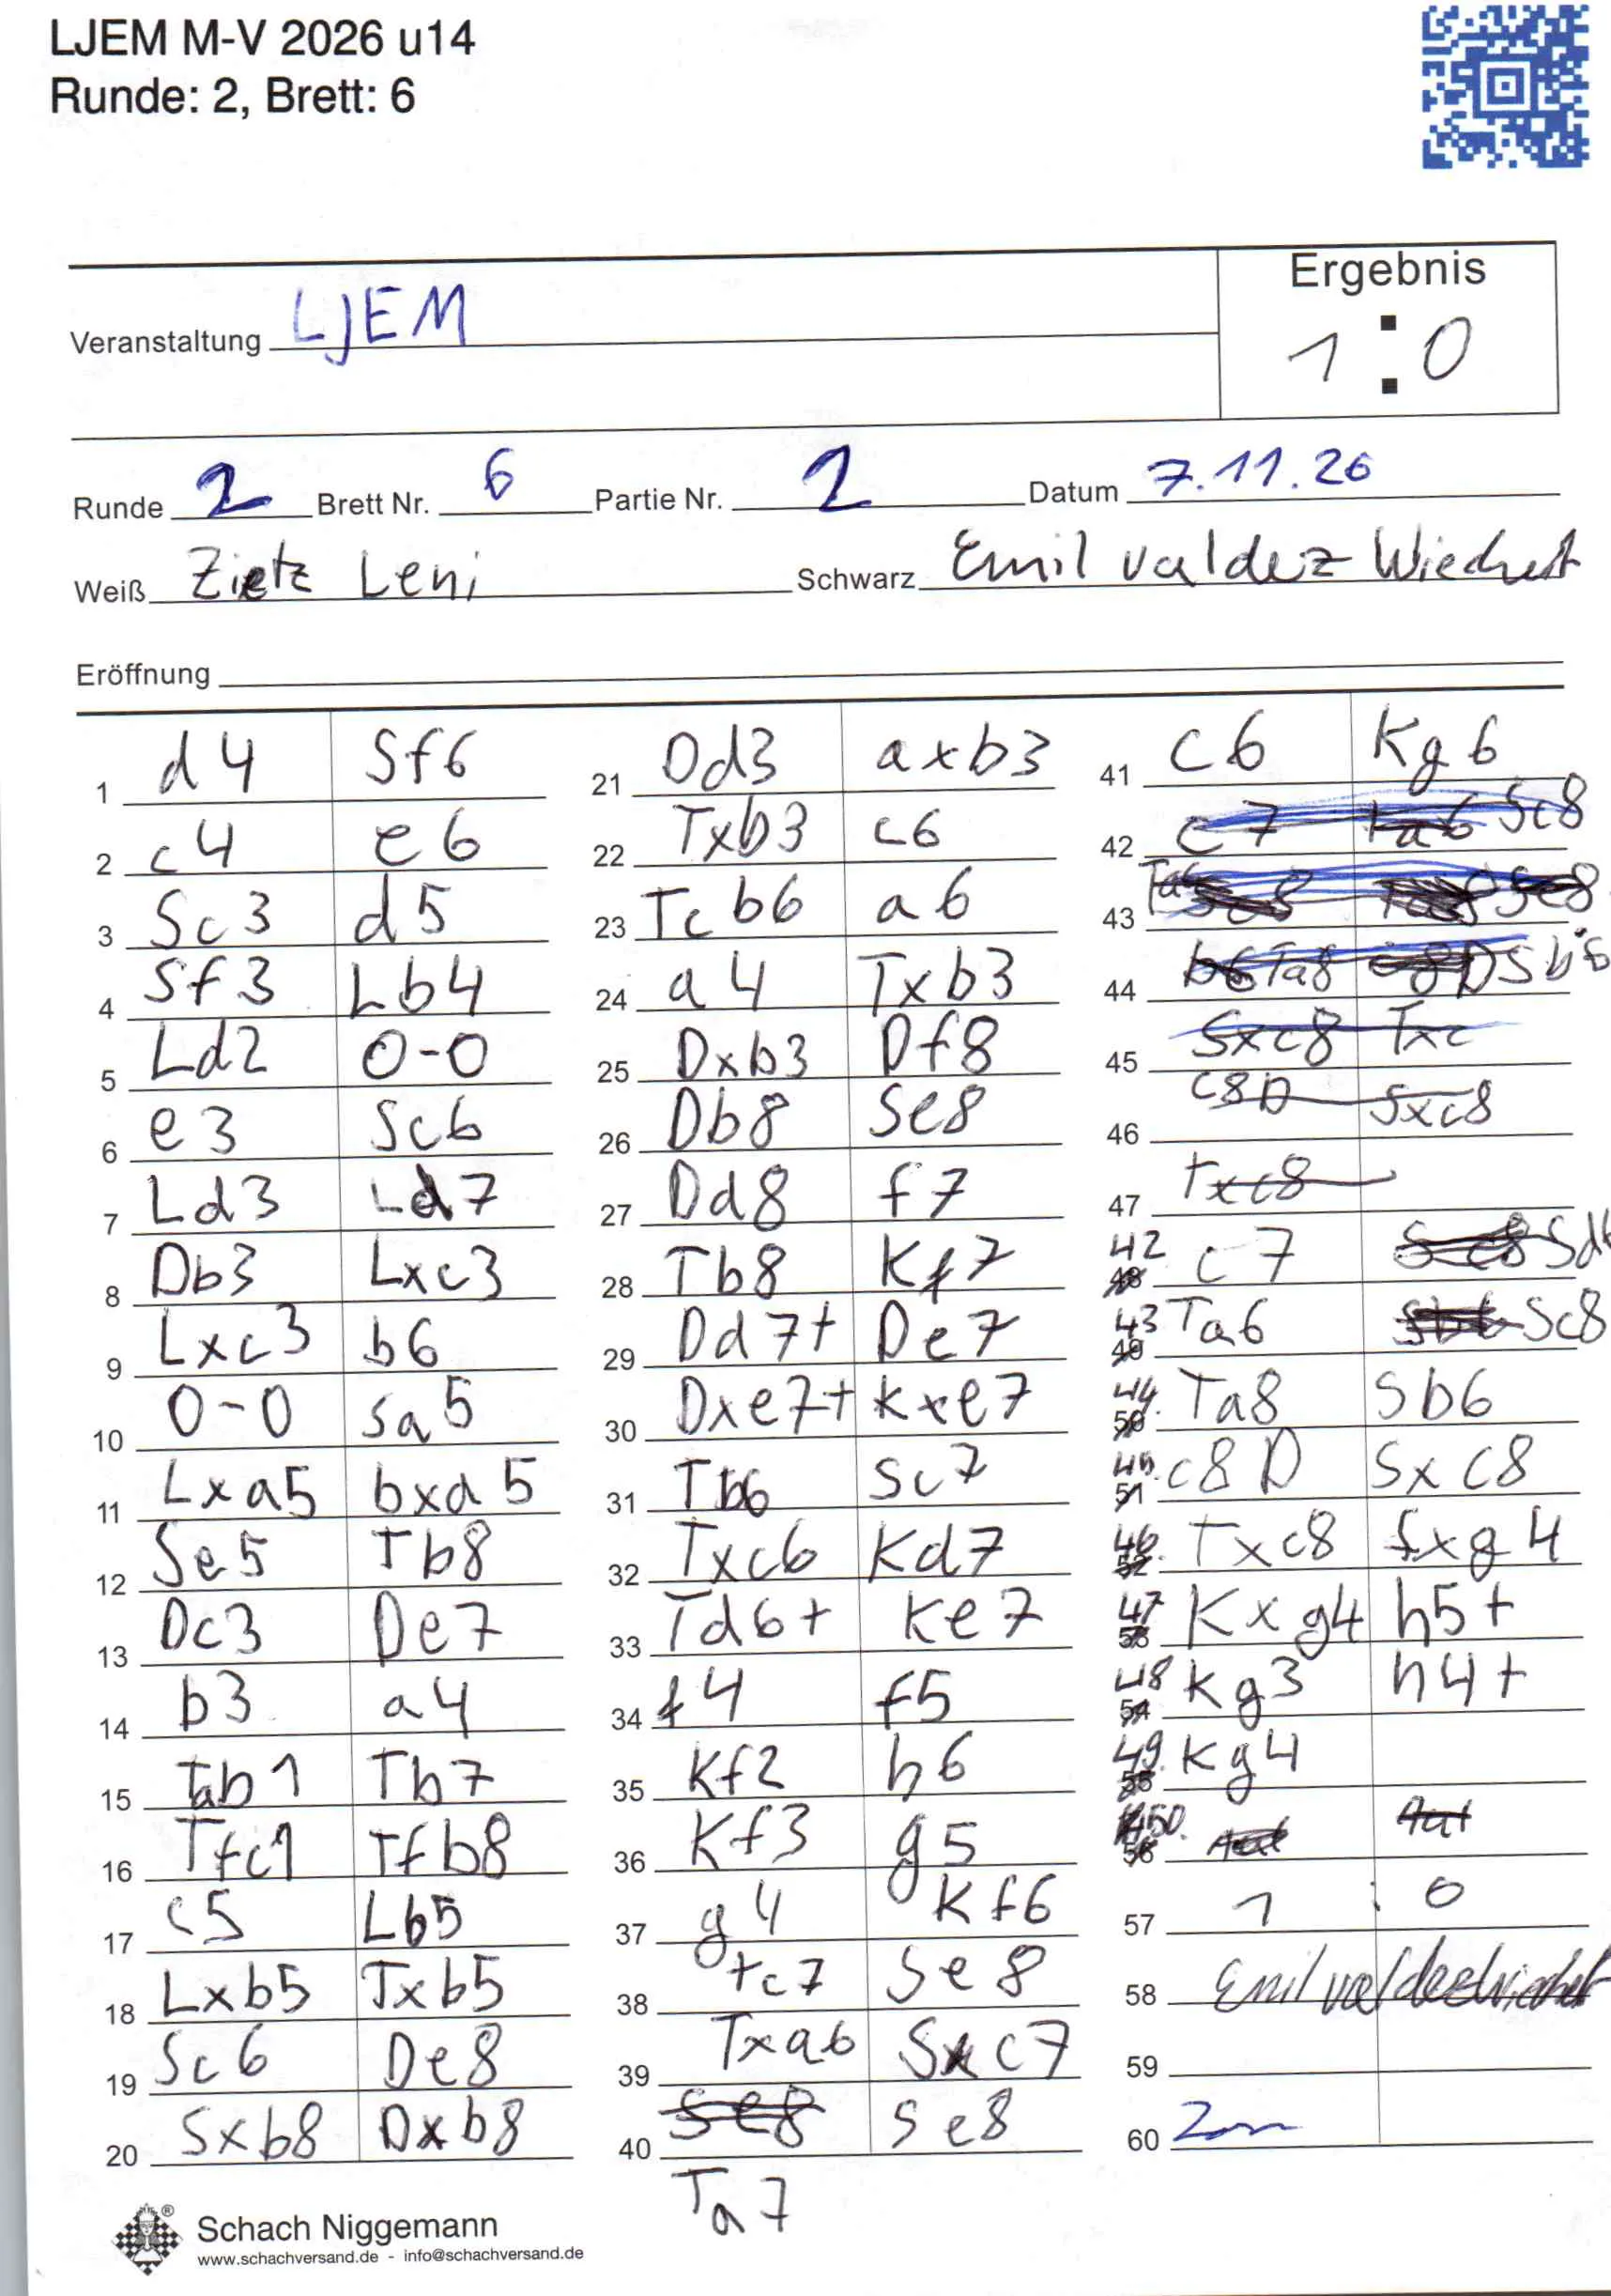 LJEM M-V 2026 u14
Runde: 2, Brett: 6
Ergebnis
Veranstaltung LJEM
1 : 0
Runde 2 Brett Nr. 6 Partie Nr. 2 Datum 7.11.26
Weiß Zietz Leni Schwarz Emil Valdez Wiechert
Eröffnung
1 d4 Sf6
2 c4 e6
3 Sc3 d5
4 Sf3 Lb4
5 Ld2 0-0
6 e3 Sc6
7 Ld3 Ld7
8 Db3 Lxc3
9 Lxc3 b6
10 0-0 Sa5
11 Lxa5 bxa5
12 Se5 Tb8
13 Dc3 De7
14 b3 a4
15 Tab1 Tb7
16 Tfc1 Tfb8
17 c5 Lb5
18 Lxb5 Txb5
19 Sc6 De8
20 Sxb8 Dxb8
21 Dd3 axb3
22 Txb3 c6
23 Tcb6 a6
24 a4 Txb3
25 Dxb3 Df8
26 Db8 Se8
27 Dd8 f7
28 Tb8 Kf7
29 Dd7+ De7
30 Dxe7+ Kxe7
31 Tb6 Sc7
32 Txc6 Kd7
33 Td6+ Ke7
34 f4 f5
35 Kf2 h6
36 Kf3 g5
37 g4 Kf6
38 Tc7 Se8
39 Txa6 Sxc7
40 Se8 Se8
Ta7
41 c6 Kg6
42 c7 Ta6 Sc8
43 Ta6 Se8
44 b6 Ta8 c8D Sb6
45 Sxc8 Txc
46 c8D Sxc8
47 Txc8
42 48 c7 Sc8 Sd6
43 49 Ta6 Sb6 Sc8
44. 50 Ta8 Sb6
45. 51 c8D Sxc8
46. 52 Txc8 fxg4
47 53 Kxg4 h5+
48 54 Kg3 h4+
49. 55 Kg4
50. 56
57 1 : 0
58 Emil valdez Wiechert
59
60
Schach Niggemann
www.schachversand.de - info@schachversand.de